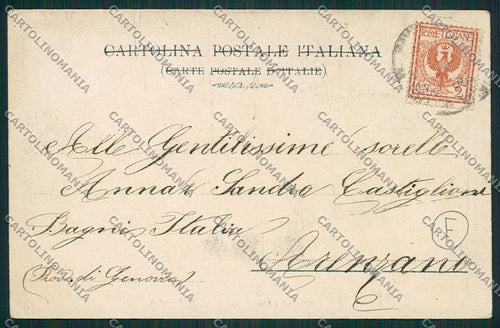 CARTOLINA POSTALE ITALIANA
(CARTE POSTALE D'ITALIE)
POSTE ITALIANE
Alle Gentilissime sorelle
Anna Sandra Castiglioni
Bagni Italia
Arenzano
Prov. di Genova
F
CARTOLINOMANIA